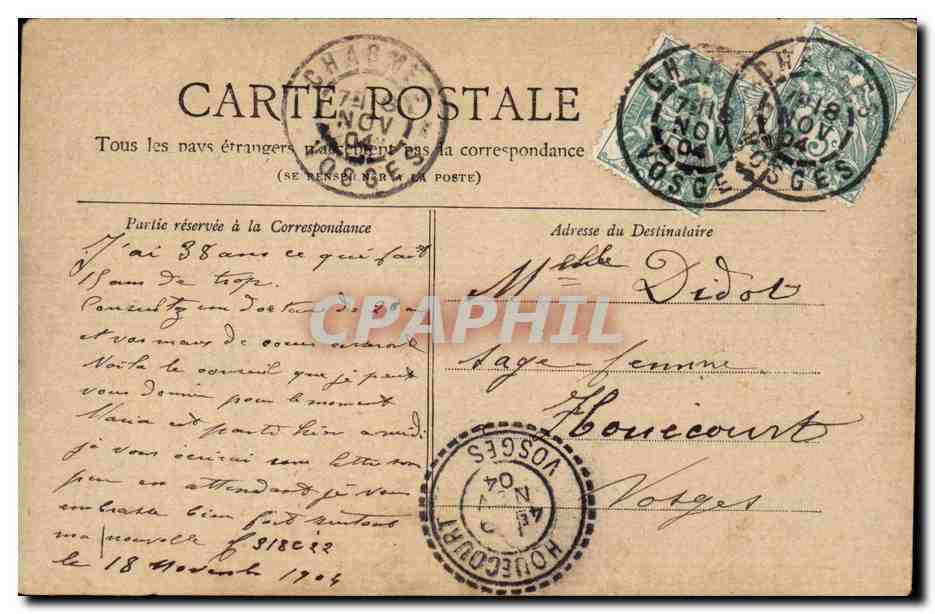 CARTE POSTALE
Tous les pays étrangers n'acceptent pas la correspondance
(SE RENSEIGNER A LA POSTE)
CHARMES 7E 18 NOV 04 VOSGES
CHARMES 7E 18 NOV 04 VOSGES
CHARMES 7E 18 NOV 04 VOSGES
5c
Partie réservée à la Correspondance
J'ai 38 ans ce qui fait
15 ans de trop.
Consultez un docteur de 28 a
et vos maux de coeur
Voilà le conseil que je peut
vous donner pour le moment
Maria est partie hier
je vous écrirai une lettre sou
peu en attendant je vous
embrasse bien fort surtout
ma nouvelle
le 18 Novembre 1904
Adresse du Destinataire
Melle Didot
sage-femme
Houécourt
Vosges
HOUECOURT VOSGES 4E NOV 04
CPAPHIL